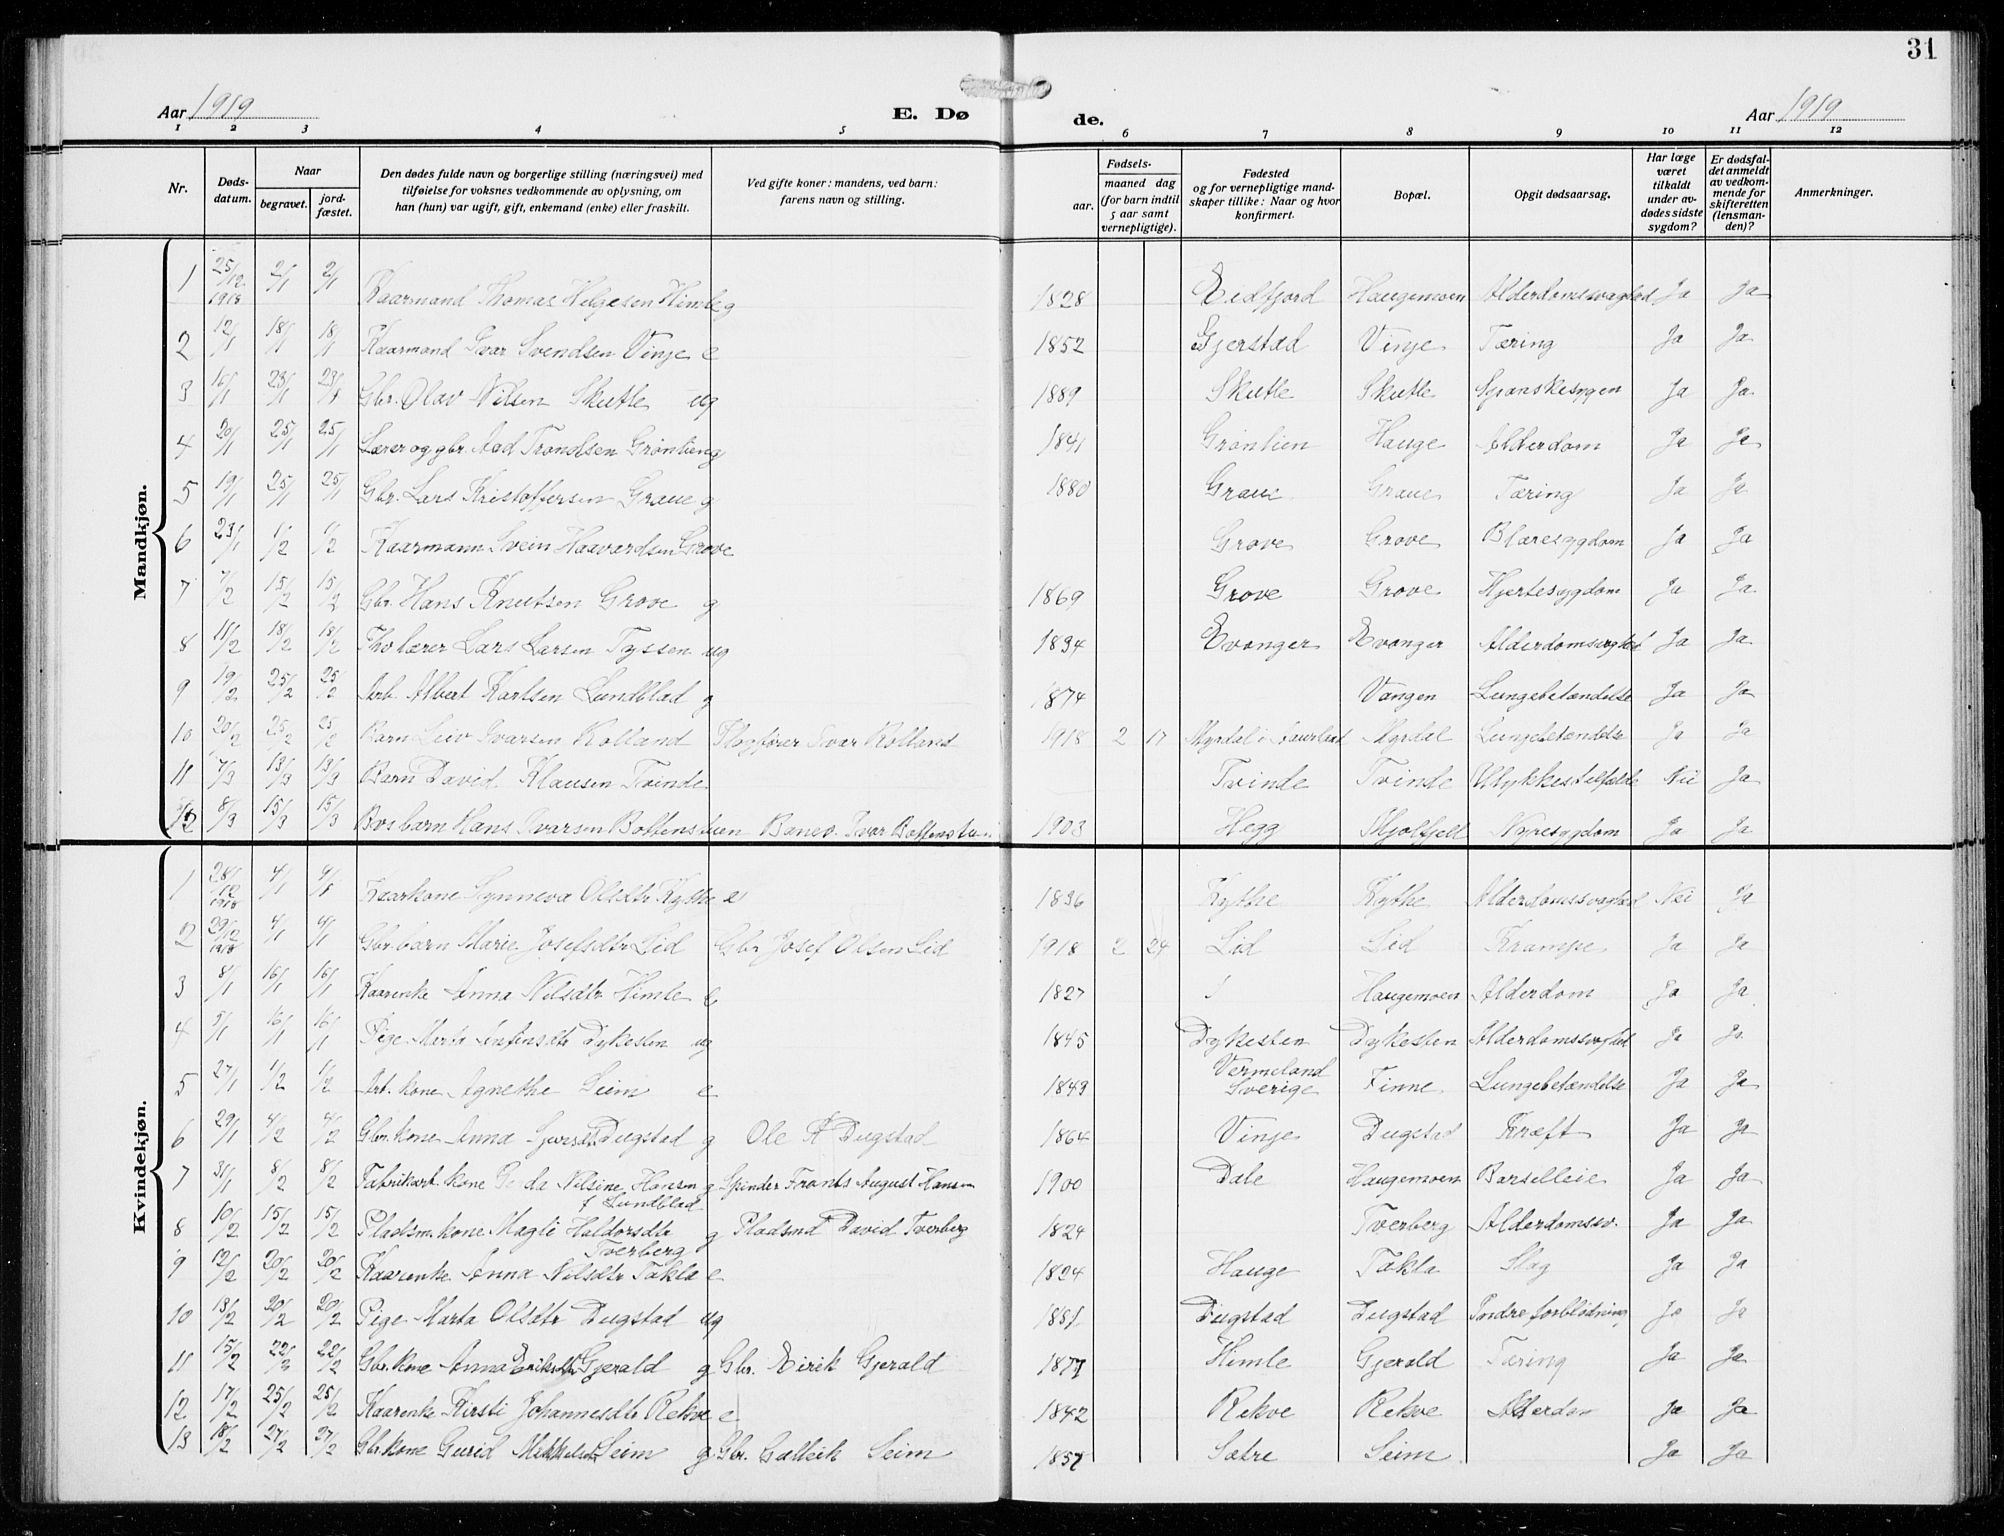 31
Aar 1919 E. Dø de. Aar 1919
1 2 3 4 5 6 7 8 9 10 11 12
Nr. Døds-datum. Naar begravet. jord-fæstet. Den dødes fulde navn og borgerlige stilling (næringsvei) med tilføielse for voksnes vedkommende av oplysning, om han (hun) var ugift, gift, enkemand (enke) eller fraskilt. Ved gifte koner: mandens, ved barn: farens navn og stilling. Fødsels- aar. maaned dag (for barn indtil 5 aar samt vernepligtige). Fødested og for vernepligtige mand-skaper tillike: Naar og hvor konfirmert. Bopæl. Opgit dødsaarsag. Har læge været tilkaldt under av-dødes sidste sygdom? Er dødsfal-det anmeldt av vedkom-mende for skifteretten (lensman-den)? Anmerkninger.
Mandkjøn.
1 25/12 1918 2/1 2/1 Kaarmand Thomas Helgesen Himle g 1828 Eidfjord Haugemoen Alderdomsvaghed Ja Ja
2 12/1 18/1 18/1 Kaarmand Ivar Svendsen Vinje e 1852 Gjerstad Vinje Tæring Ja Ja
3 16/1 23/1 23/1 Gbr. Olav Nilsen Skutle ug 1889 Skutle Skutle Spanskesygen Ja Ja
4 20/1 25/1 25/1 Lærer og gbr. Aad Trondsen Grønlien g 1841 Grønlien Hauge Alderdom Ja Ja
5 19/1 25/1 25/1 Gbr. Lars Kristoffersen Graue g 1880 Graue Graue Tæring Ja Ja
6 23/1 1/2 1/2 Kaarmann Svein Haavardsen Grove Grove Grove Blæresygdom Ja Ja
7 7/2 15/2 15/2 Gbr. Hans Knutsen Grove g 1869 Grove Grove Hjertesygdom Ja Ja
8 11/2 18/2 18/2 Fhv lærer Lars Larsen Tyssen ug 1834 Evanger Evanger Alderdomsvaghed Ja Ja
9 19/2 25/2 25/2 Arb. Albert Karlsen Lundblad g 1874 Vangen Lungebetændelse Ja Ja
10 20/2 25/2 25/2 Barn Leiv Ivarsen Rolland Plogfører Ivar Rolland 1918 2 17 Myrdal i Aurland Myrdal Lungebetændelse Ja Ja
11 7/3 13/3 13/3 Barn David Klausen Tvinde Tvinde Tvinde Ulykkestilfælde Nei Ja
12 8/3 15/3 15/3 Bvs barn Hans Ivarsen Boffenstuen Banev. Ivar Boffenstuen 1903 Hegg Mjølfjell Nyresygdom Ja Ja
Kvindekjøn.
1 28/12 1918 4/1 4/1 Kaarkone Synneva Olsdtr Kythe e 1836 Kythe Kythe Alderdomssvaghed Nei Ja
2 29/12 1918 4/1 4/1 Gbr. barn Marie Josefsdtr Lid Gbr Josef Olsen Lid 1918 2 24 Lid Lid Krampe Ja Ja
3 8/1 16/1 16/1 Kaarenke Anna Nilsdtr Himle e 1827 Haugemoen Alderdom Ja Ja
4 5/1 16/1 16/1 Pige Marta Anfinsdtr Dykesten ug 1845 Dykesten Dykesten Alderdomssvaghed Ja Ja
5 27/1 1/2 1/2 Arb. kone Agnethe Seim e 1849 Vermeland Sverige Finne Lungebetændelse Ja Ja
6 29/1 4/2 4/2 Gbr. kone Anna Dugstad g Ole A Dugstad 1864 Vinje Dugstad Kræft Ja Ja
7 31/1 8/2 8/2 Fabrikarb. kone Nilsine Hansen g Spinder Frants August Hansen 1900 Dale Haugemoen Barselleie Ja Ja
f Lundblad
8 10/2 15/2 15/2 Pladsm. kone Magli Haldorsdtr g Pladsmd David Tverberg 1824 Tverberg Alderdomssv. Ja Ja
Tverberg
9 12/2 20/2 20/2 Kaarenke Anna Nilsdtr Takla e 1824 Hauge Takla Slag Ja Ja
10 13/2 20/2 20/2 Pige Marta Olsdtr Dugstad ug 1851 Dugstad Dugstad Indre forblødning Ja Ja
11 15/2 22/2 22/2 Gbr. kone Anna Eriksdtr Gjerald g Gbr. Eirik Gjerald 1877 Himle Gjerald Tæring Ja Ja
12 17/2 25/2 25/2 Kaarenke Kirsti Johannesdtr Rekve e 1842 Rekve Rekve Alderdom Ja Ja
13 18/2 27/2 27/2 Gbr. kone Gurid Mikkelsen Seim g Gbr. Galleik Seim 1857 Sætre Seim Ja Ja